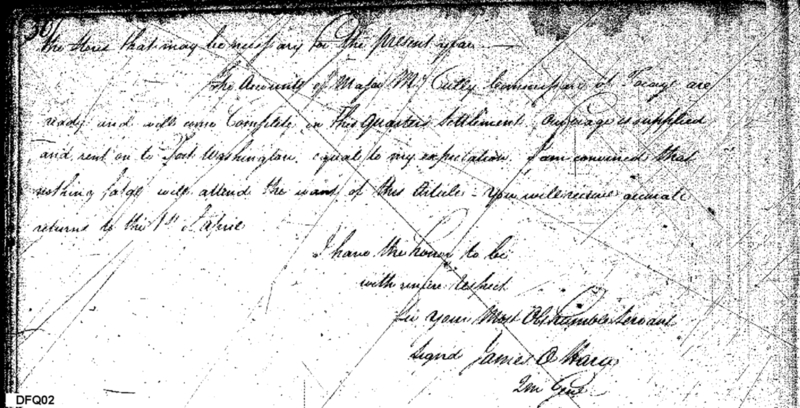 361
the Stores that may be necessary for the present year. —
The Accounts of Major Commissary of Forage are
ready and will come Complete in this Quarters Settlement. forage is supplied
and sent on to Fort Washington, equal to my expectation, I am convinced that
nothing will attend the want of this Article - You will receive accurate
returns to the 1st of April
I have the honor to be
with respect
Sir Your Most Obt Humble Servant
Signd James O Hara
Qm Genl
DFQ02